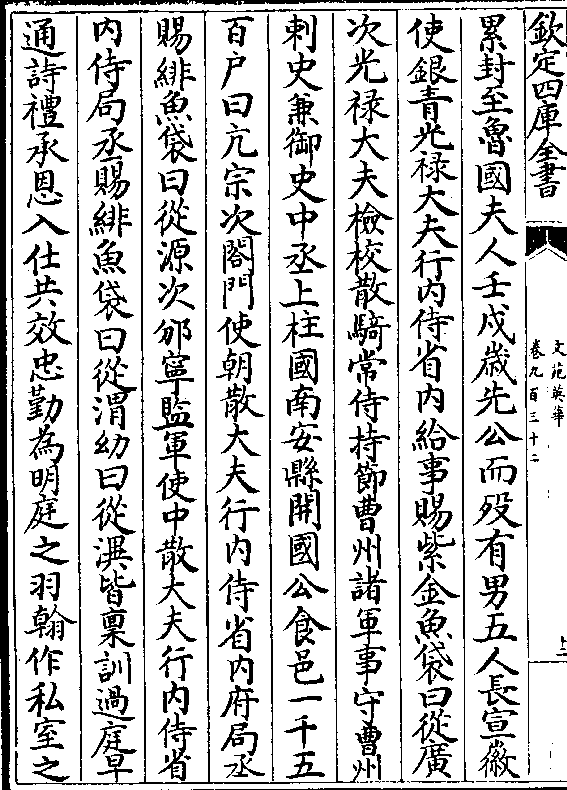 欽定四庫全書
文苑英華
卷九百三十二
累封至魯國夫人壬戌歲先公而歿有男五人長宣徽
使銀青光禄大夫行内侍省内給事賜紫金魚袋曰從廣
次光禄大夫檢校散騎常侍持節曹州諸軍事守曹州
刺史兼御史中丞上柱國南安縣開國公食邑一千五
百户曰亢宗次閤門使朝散大夫行内侍省内府局丞
賜緋魚袋曰從源次邠寧監軍使中散大夫行内侍省
内侍局丞賜緋魚袋曰從渭幼曰從淇皆稟訓過庭早
通詩禮承恩入仕共效忠勤為明庭之羽翰作私室之